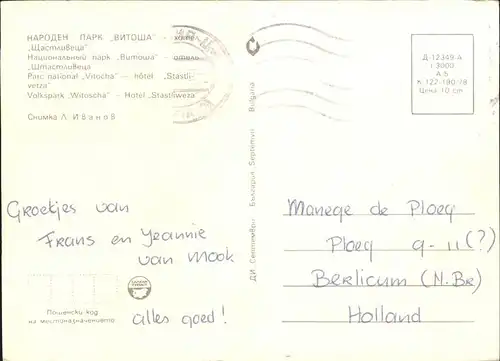 НАРОДЕН ПАРК „ВИТОША" – хотел
„Щастливеца"
Национальный парк „Витоша" – отель
„Штастливеца
Parc national „Vitocha" – hôtel „Stastli-
vetza"
Volkspark „Witoscha" – Hotel „Stastliweza
Снимка Л. Иванов
Д-12349-А
I 3000
А 5
К 122-190-78
Цена 10 cm
ДИ „Септември" България Septemvri Bulgaria
Groetjes van
Frans en Jeannie
van Mook
alles goed!
Пощенски код
на местоназначението
Manege de Ploeg
Ploeg 9-11(?)
Berlicum (N.Br)
Holland